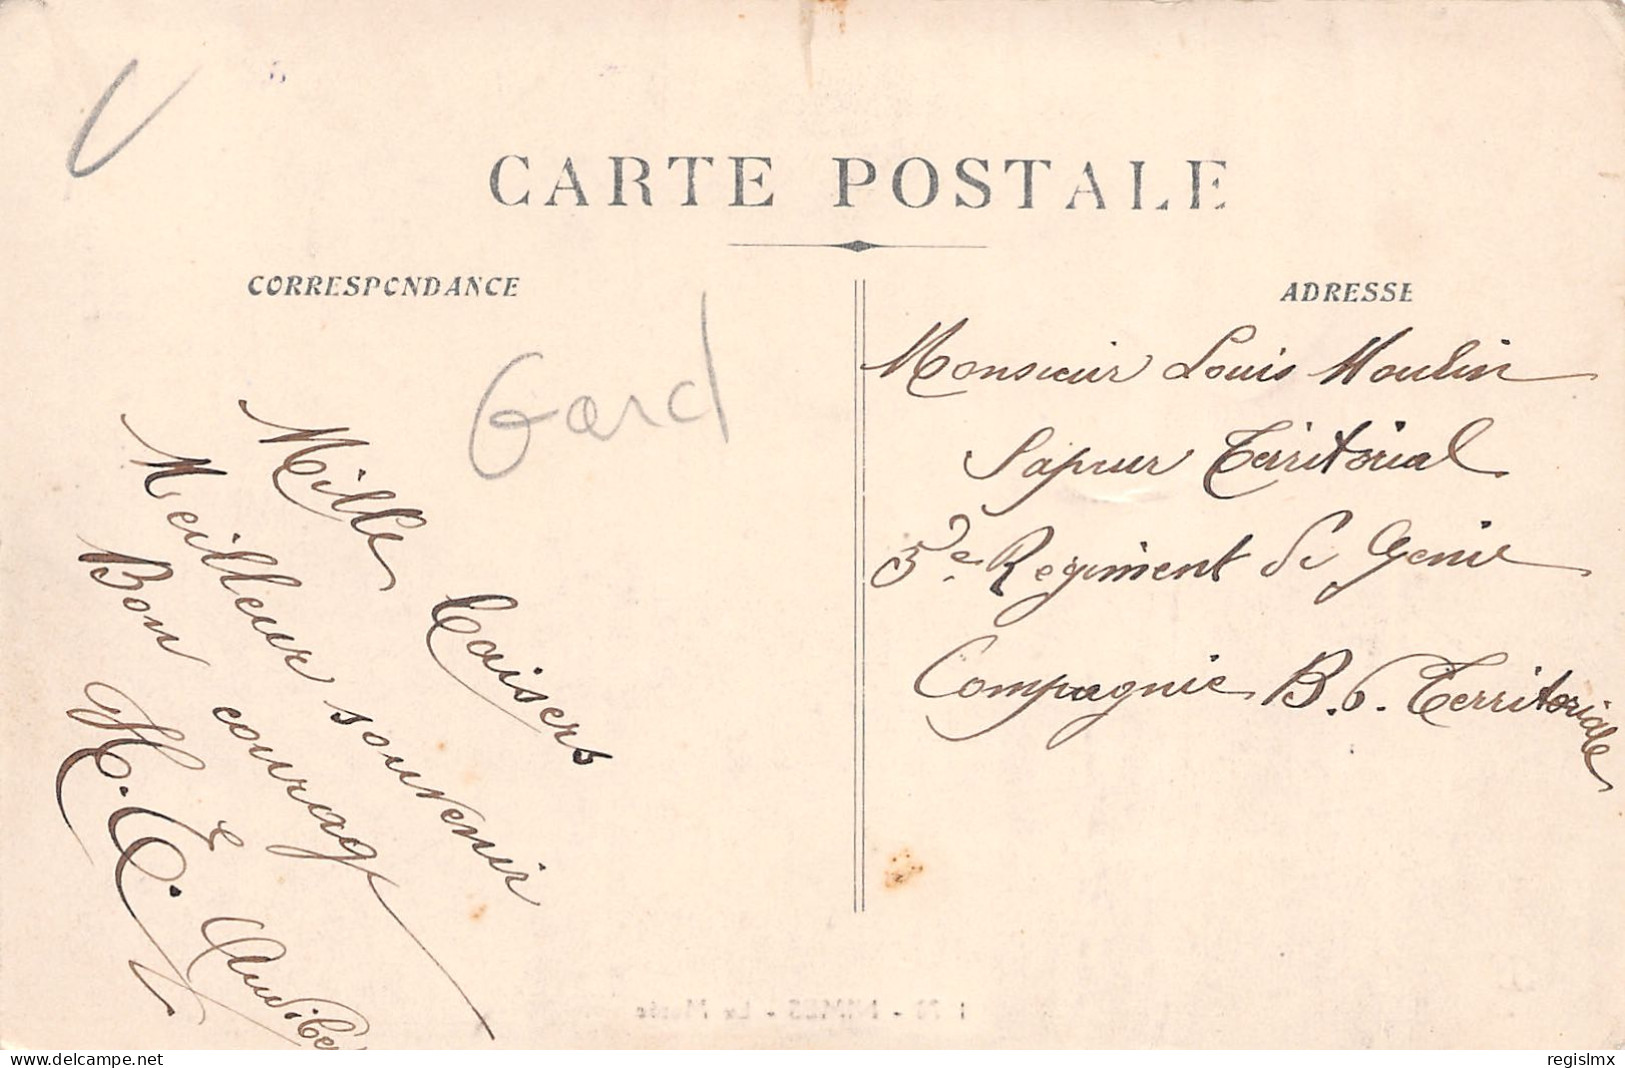 CARTE POSTALE
CORRESPONDANCE
ADRESSE
Gard
Mille Baisers
Meilleur souvenir
Bon courage
Monsieur Louis Moulin
Sapeur Territorial
5e Regiment de Genie
Compagnie B.6. Territoriale
NIMES - Le Musée
www.delcampe.net
regislmx